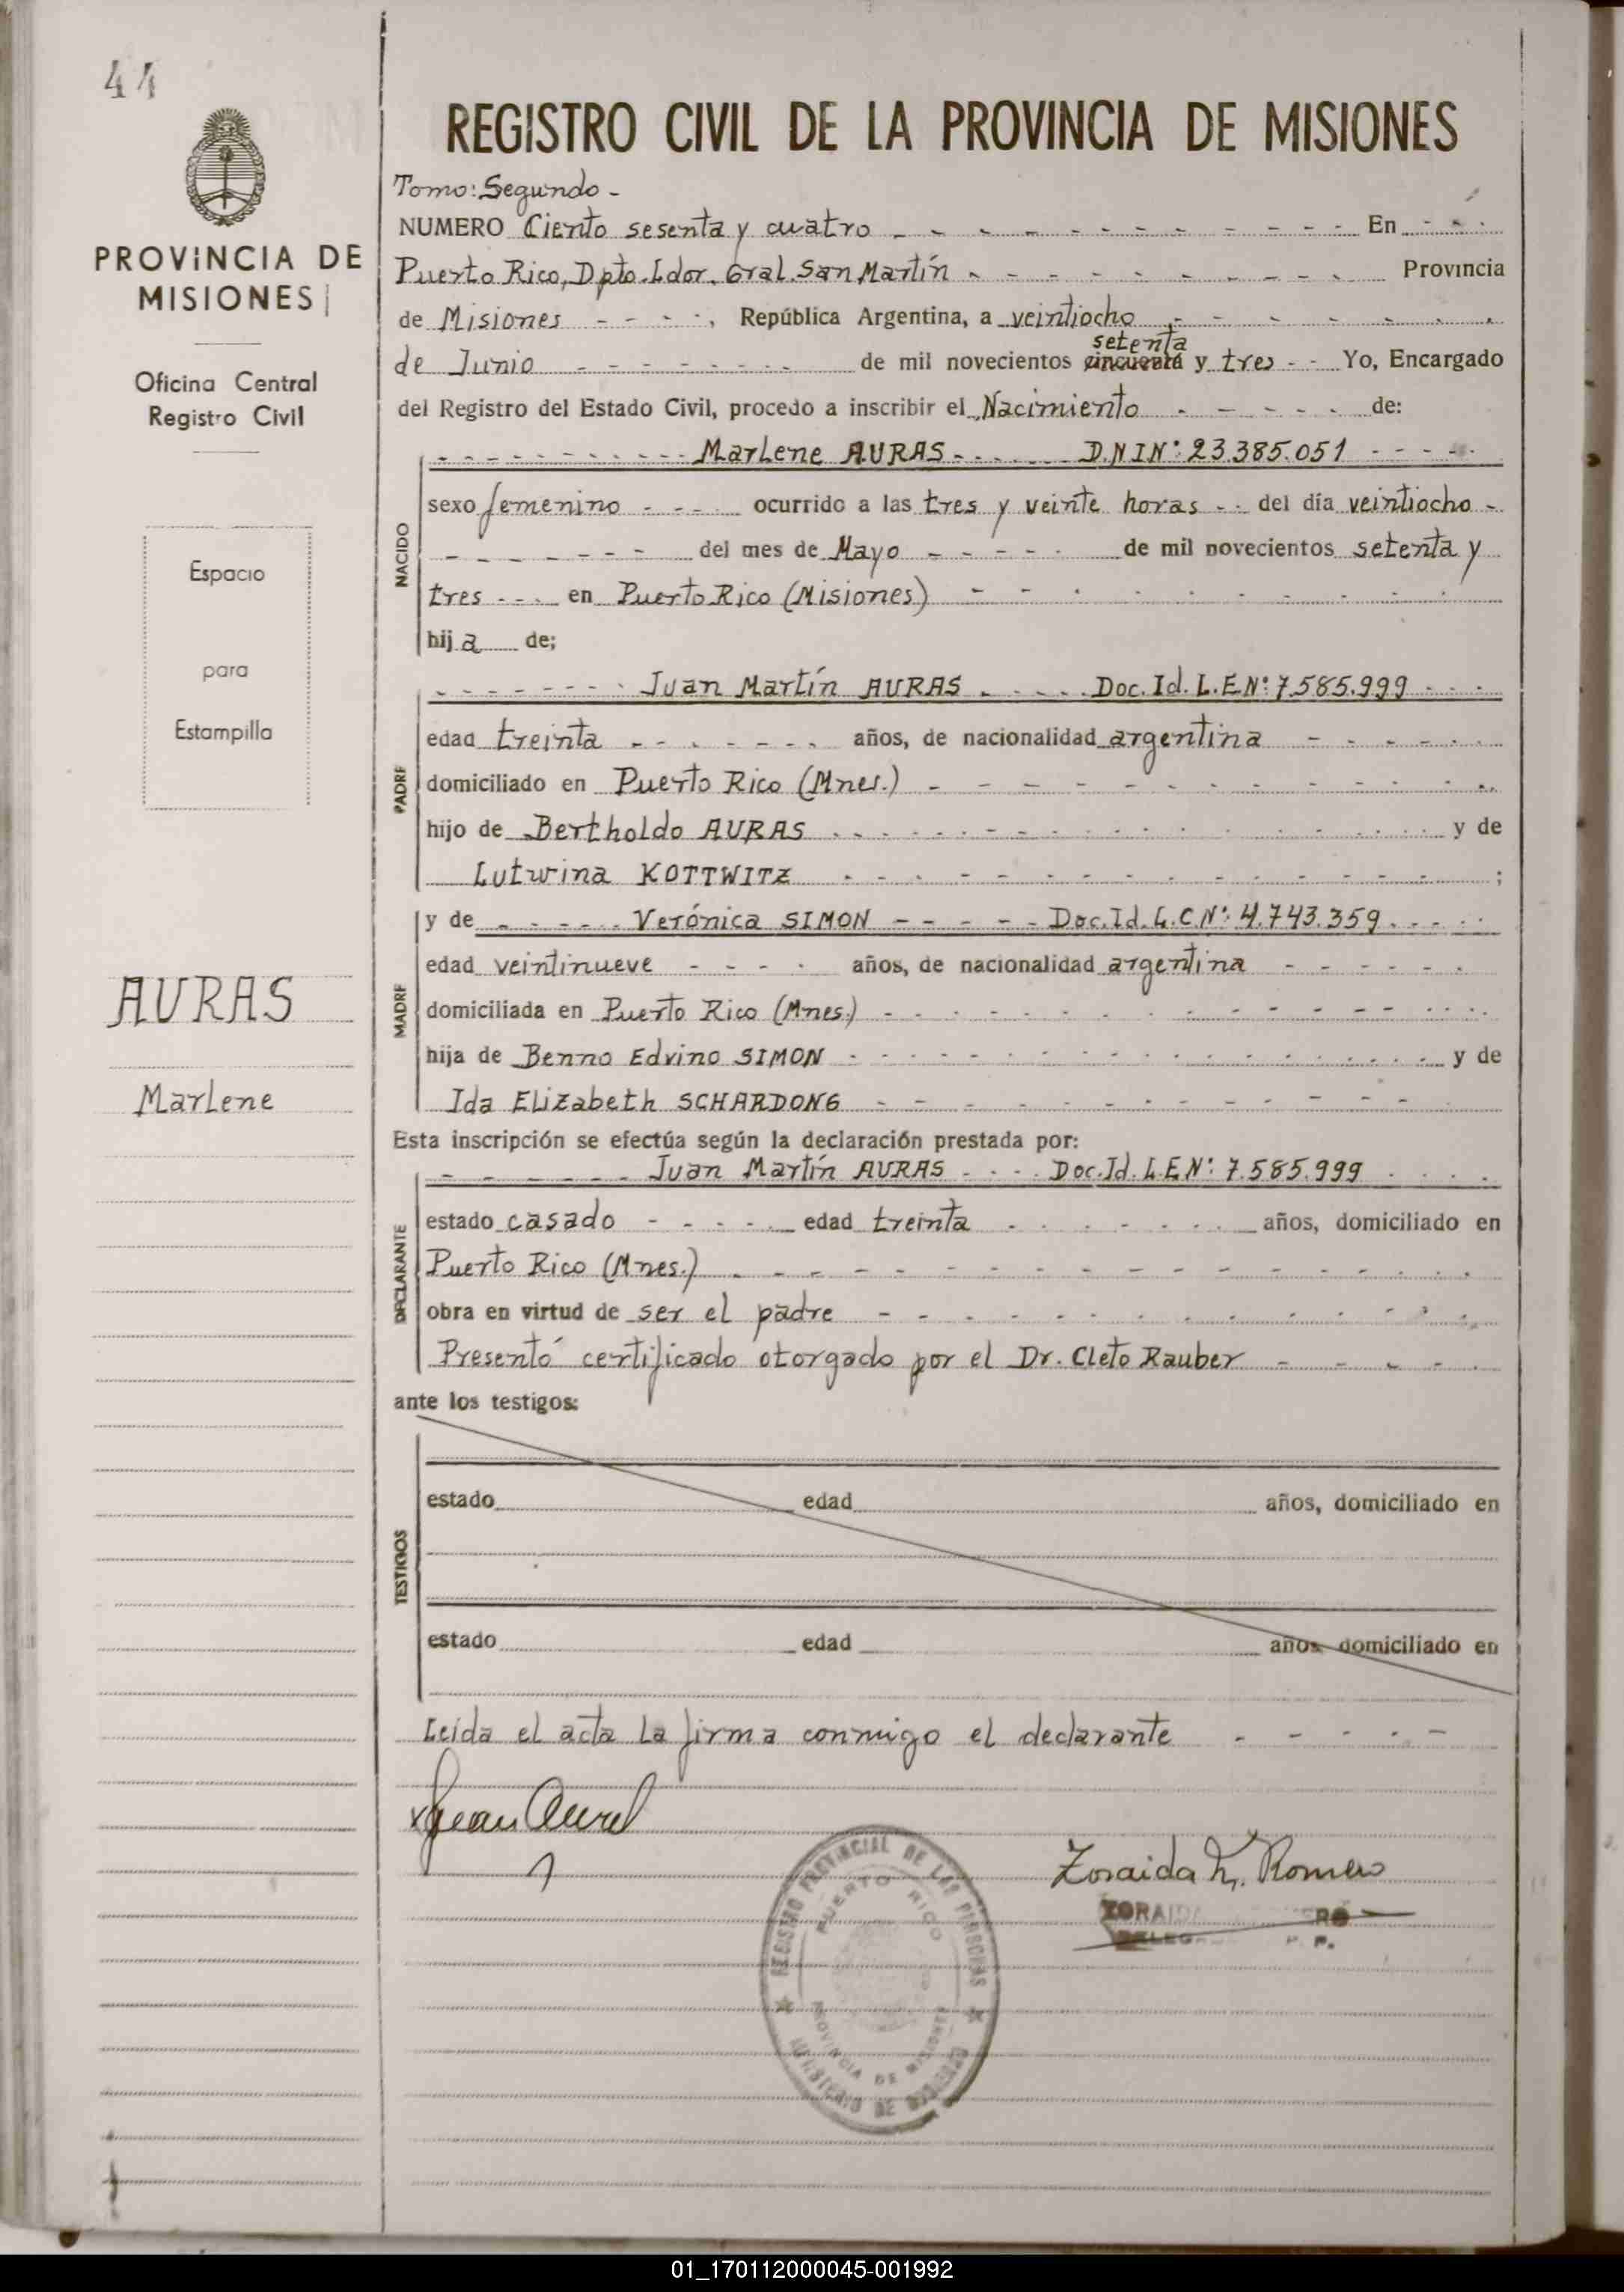 44
PROVINCIA DE
MISIONES
Oficina Central
Registro Civil
Espacio
para
Estampilla
AURAS
Marlene
REGISTRO CIVIL DE LA PROVINCIA DE MISIONES
Tomo: Segundo -
NUMERO Ciento sesenta y cuatro En
Puerto Rico, Dpto. Ldor. Gral. San Martín Provincia
de Misiones, República Argentina, a veintiocho
setenta
de Junio de mil novecientos cincuenta y tres Yo, Encargado
del Registro del Estado Civil, procedo a inscribir el Nacimiento de:
Marlene AURAS D.N.I Nº 23.385.051
NACIDO
sexo femenino ocurrido a las tres y veinte horas del día veintiocho
del mes de Mayo de mil novecientos setenta y
tres en Puerto Rico (Misiones)
hija de;
Juan Martín AURAS Doc. Id. L.E Nº 7.585.999
PADRE
edad treinta años, de nacionalidad argentina
domiciliado en Puerto Rico (Mnes.)
hijo de Bertholdo AURAS y de
Lutwina KOTTWITZ ;
MADRE
y de Verónica SIMON Doc. Id. L.C Nº 4.743.359
edad veintinueve años, de nacionalidad argentina
domiciliada en Puerto Rico (Mnes.)
hija de Benno Edvino SIMON y de
Ida Elizabeth SCHARDONG
Esta inscripción se efectúa según la declaración prestada por:
Juan Martín AURAS Doc. Id. L.E Nº 7.585.999
DECLARANTE
estado casado edad treinta años, domiciliado en
Puerto Rico (Mnes.)
obra en virtud de ser el padre
Presentó certificado otorgado por el Dr. Cleto Rauber
ante los testigos:
TESTIGOS
estado edad años, domiciliado en
estado edad años domiciliado en
Leída el acta la firma conmigo el declarante
Juan
Zoraida Romero
ZORAIDA
REGISTRO PROVINCIAL DE LAS PERSONAS
PUERTO RICO
PROVINCIA DE MISIONES
MINISTERIO DE GOBIERNO
01_170112000045-001992